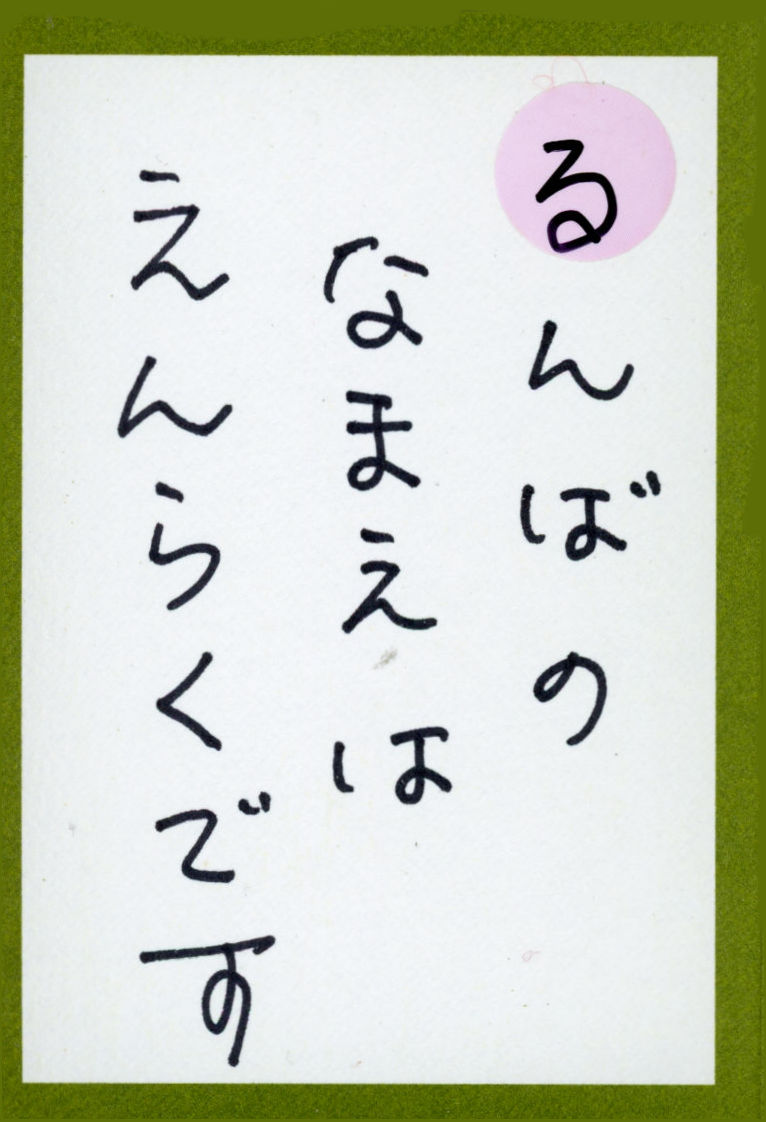 るんばの
なまえは
えんらくです